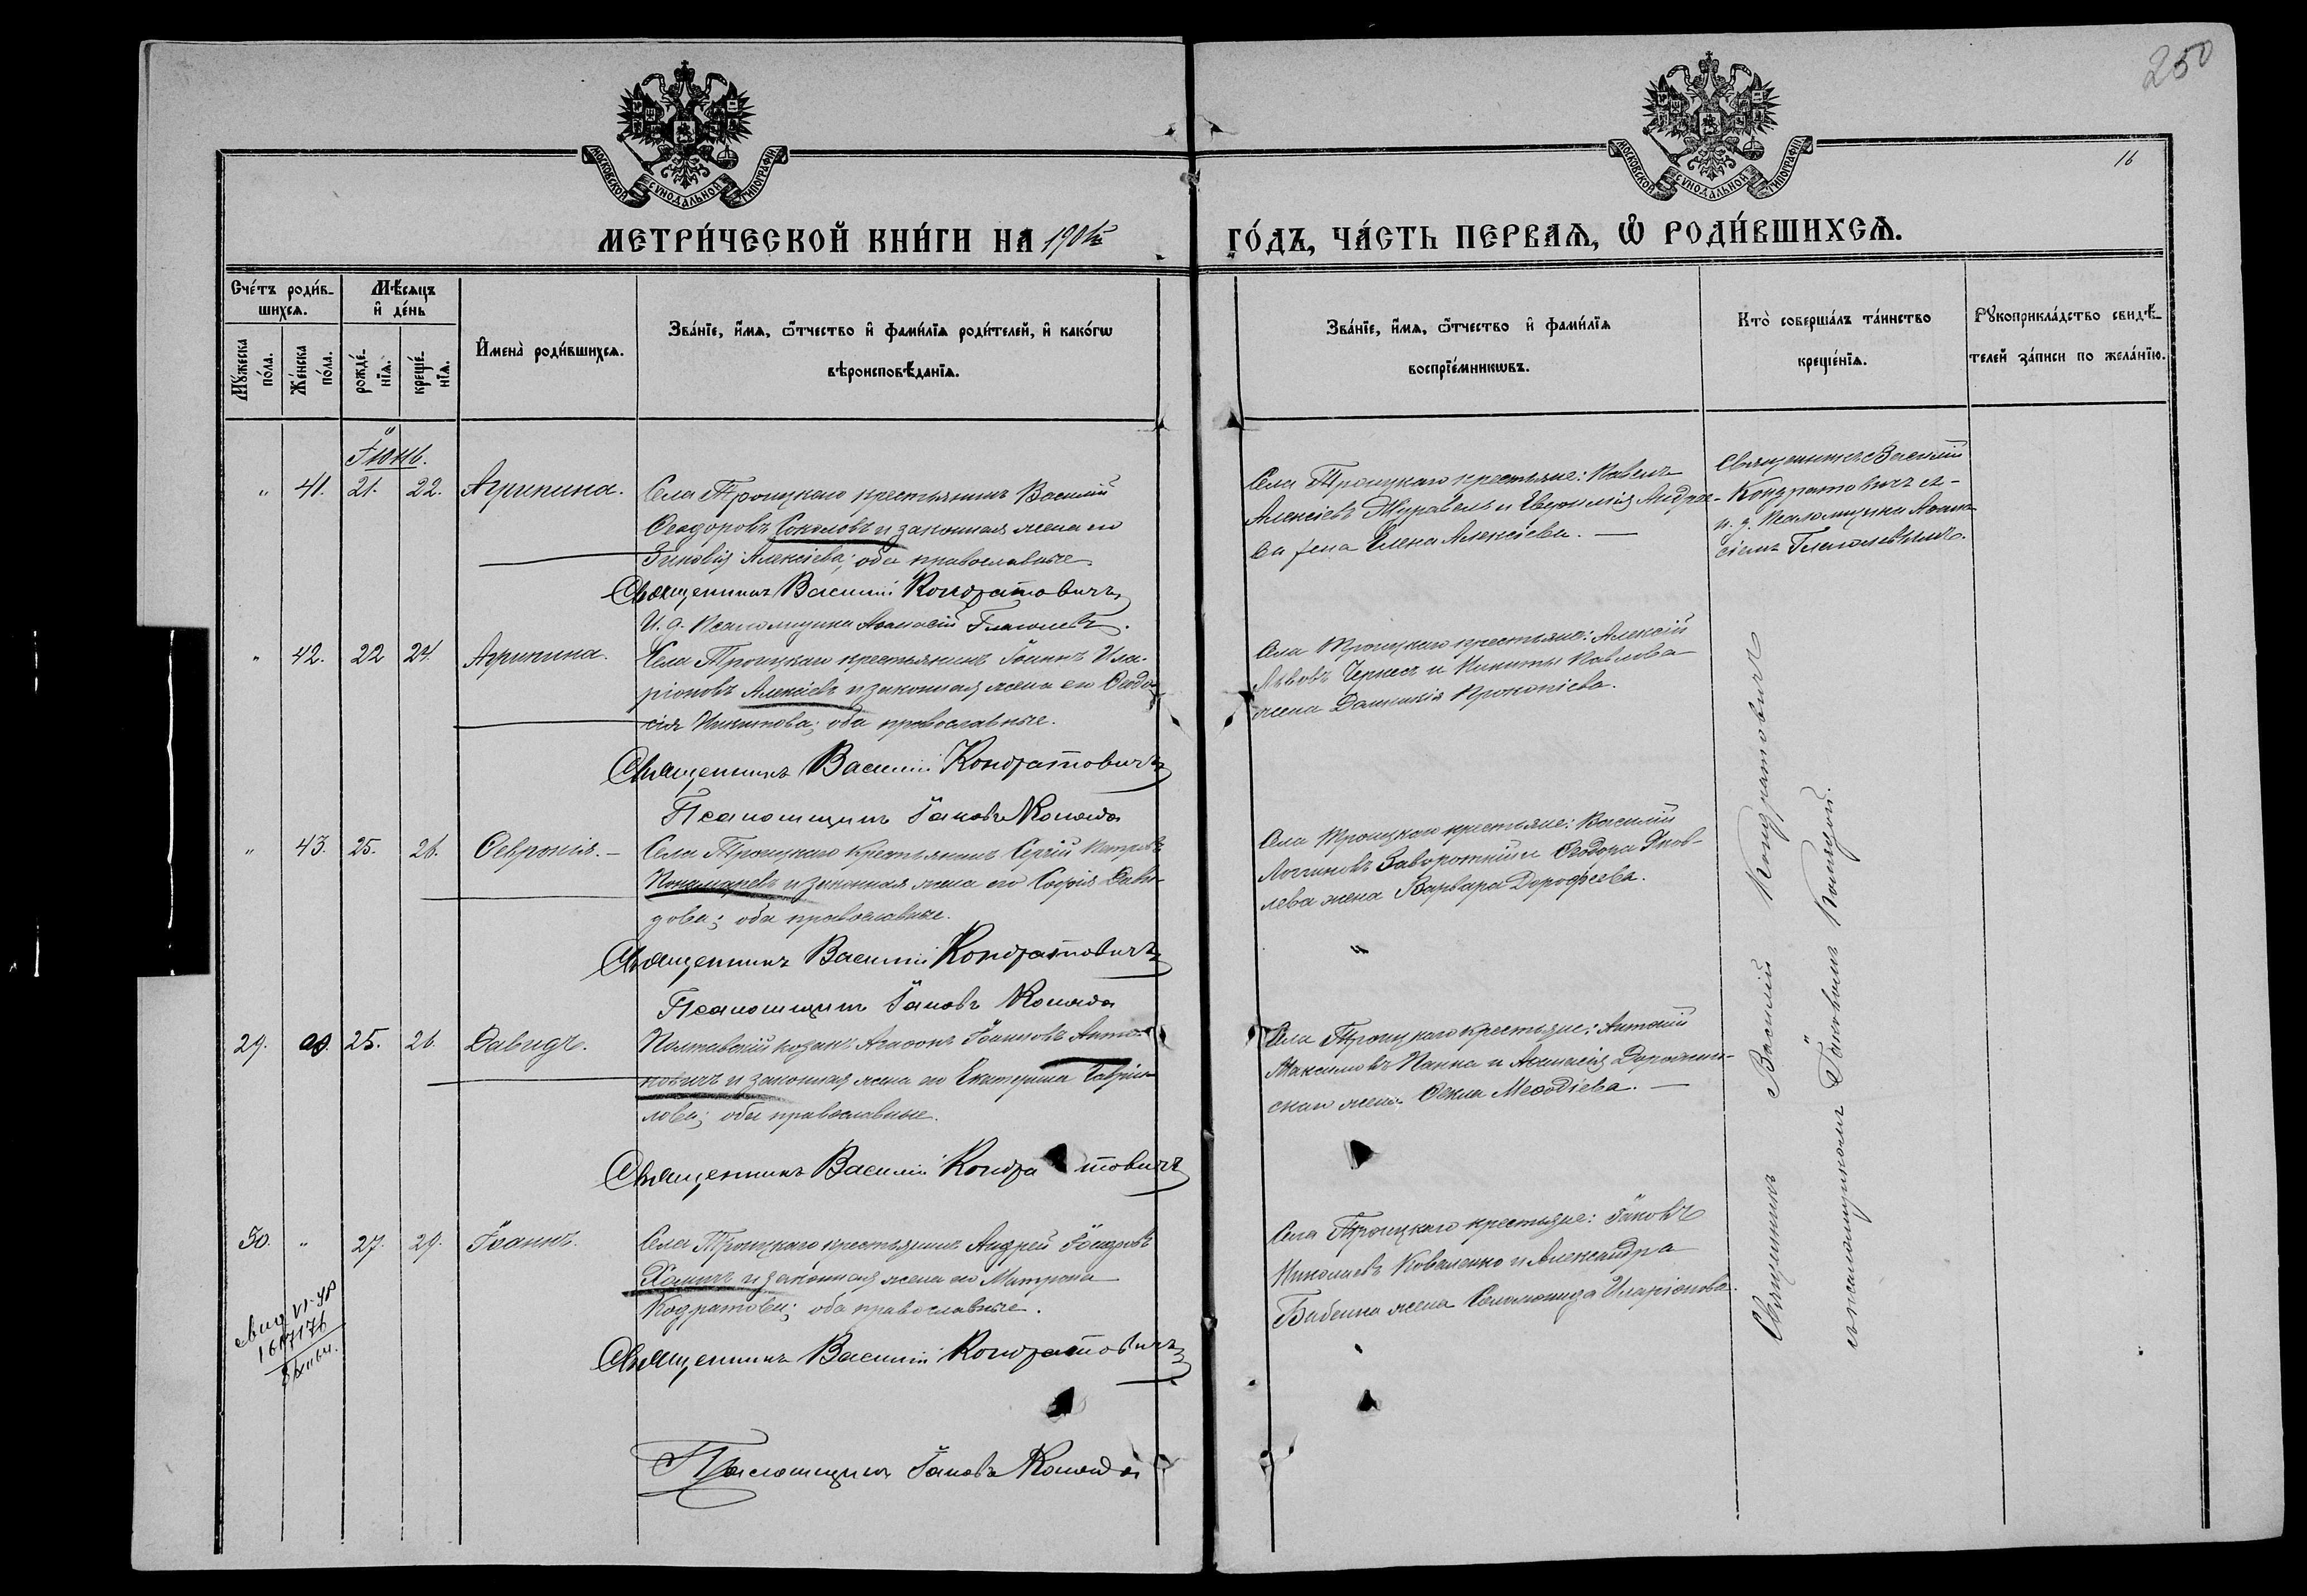 250
16
МОСКОВСКОЙ СѴНОДАЛЬНОЙ ТИПОГРАФІИ
МОСКОВСКОЙ СѴНОДАЛЬНОЙ ТИПОГРАФІИ
МЕТРИ́ЧЕСКОЙ КНИ́ГИ НА
ГО́ДЪ, ЧА́СТЬ ПЕРВАѦ, Ѡ҆ РОДИ́ВШИХСѦ.
Сче́тъ роди́в-
шихсѧ.
Мꙋжеска
по́ла.
Же́нска
по́ла.
Мѣ́сѧцъ
и҆ де́нь
рожде́-
нїѧ.
креще́-
нїѧ.
И҆мена̀ роди́вшихсѧ.
Зва́нїе, и҆́мѧ, ѻ҆́тчество и҆ фами́лїѧ роди́телей, и҆ како́гѡ
вѣроисповѣ́данїѧ.
Зва́нїе, и҆́мѧ, ѻ҆́тчество и҆ фами́лїѧ
воспрїе́мникѡвъ.
Кто̀ соверша́лъ та́инство
креще́нїѧ.
Рꙋкоприкла́дство свидѣ́-
телей за́писи по жела́нїю.
Іюнь.
" 41. 21. 22. Агрипина.
Села Троицкаго крестьянинъ Василій
Ѳеодоровъ Соколовъ и законная жена его
Зиновія Алексіева; оба православные
Священникъ Василій Кондратовичъ
И. д. Псаломщика Аѳанасій Глаголевъ.
Села Троицкаго крестьяне: Павелъ
Алексіевъ Журавель и Андрее-
ва жена Елена Алексіева. —
Священникъ Василій
Кондратовичъ съ
и. д. Псаломщика Аѳана-
сіемъ Глаголевымъ.
" 42. 22 24. Агрипина.
Села Троицкаго крестьянинъ Іоаннъ Ила-
ріоновъ Алексіевъ и законная жена его Ѳеодо-
сія Никитова; оба православные.
Священникъ Василій Кондратовичъ
Псаломщикъ Іаковъ
Села Троицкаго крестьяне: Алексій
Львовъ Чернес и Никиты Павлова
жена Домникія Прокопіева.
" 43. 25. 26. Ѳевронія. —
Села Троицкаго крестьянинъ Сергій Петровъ
Пономаревъ и законная жена его Софія Дави-
дова; оба православные.
Священникъ Василій Кондратовичъ
Псаломщикъ Іаковъ
Села Троицкаго крестьяне: Василій
Логгиновъ Заворотній и Ѳеодора Яков-
лева жена Варвара Дороѳеева.
"
29. 25. 26. Давидъ.
Полтавскій козакъ Агаѳонъ Іоанновъ Анто-
новичъ и законная жена его Екатерина Гавріи-
лова; оба православные.
Священникъ Василій Кондратовичъ
Села Троицкаго крестьяне: Антоній
Максимовъ Панна и Аѳанасія
жена Ѳекла Меѳодіева. —
30. " 27. 29. Іоаннъ.
Села Троицкаго крестьянинъ Андрей
и законная жена его Матрона
Кодратова; оба православные.
Священникъ Василій Кондратовичъ
Псаломщикъ Іаковъ
Села Троицкаго крестьяне: Іаковъ
Николаевъ Коваленко и Александра
Бабенка жена Соломонида Иларіонова.
Священникъ Василій Кондратовичъ
съ псаломщикомъ Іаковомъ